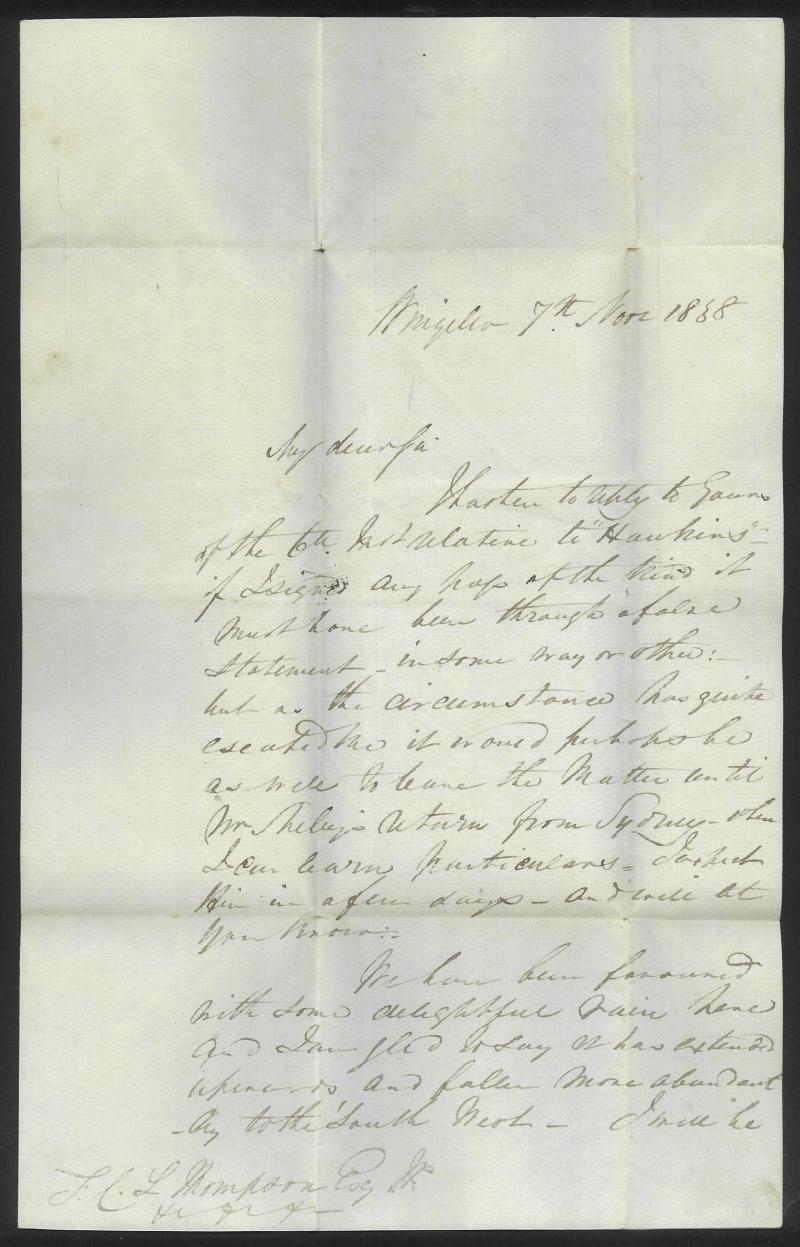 Wingelo 7th Novr 1838
My dear Sir
I hasten to reply to Yours
of the 6th Inst relative to "Hawkins" =
if I signed any pass of the kind it
must have been through a false
statement - in some way or other: -
but as the circumstance has quite
escaped me it would perhaps be
as well to leave the Matter until
Mr return from Sydney - when
I can learn particulars = I expect
Him in a few days - and will let
you know: =
We have been favoured
with some delightful rain here
and I am glad to say it has extended
upwards and fallen more abundant
-ly to the South West - I will be
Thompson Esq JP
&c &c &c